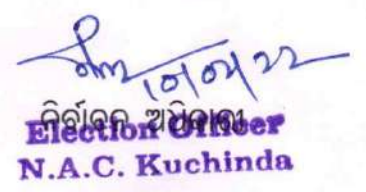 ନିର୍ବାଚନ ଅଧିକାରୀ
Election Officer
N.A.C. Kuchinda